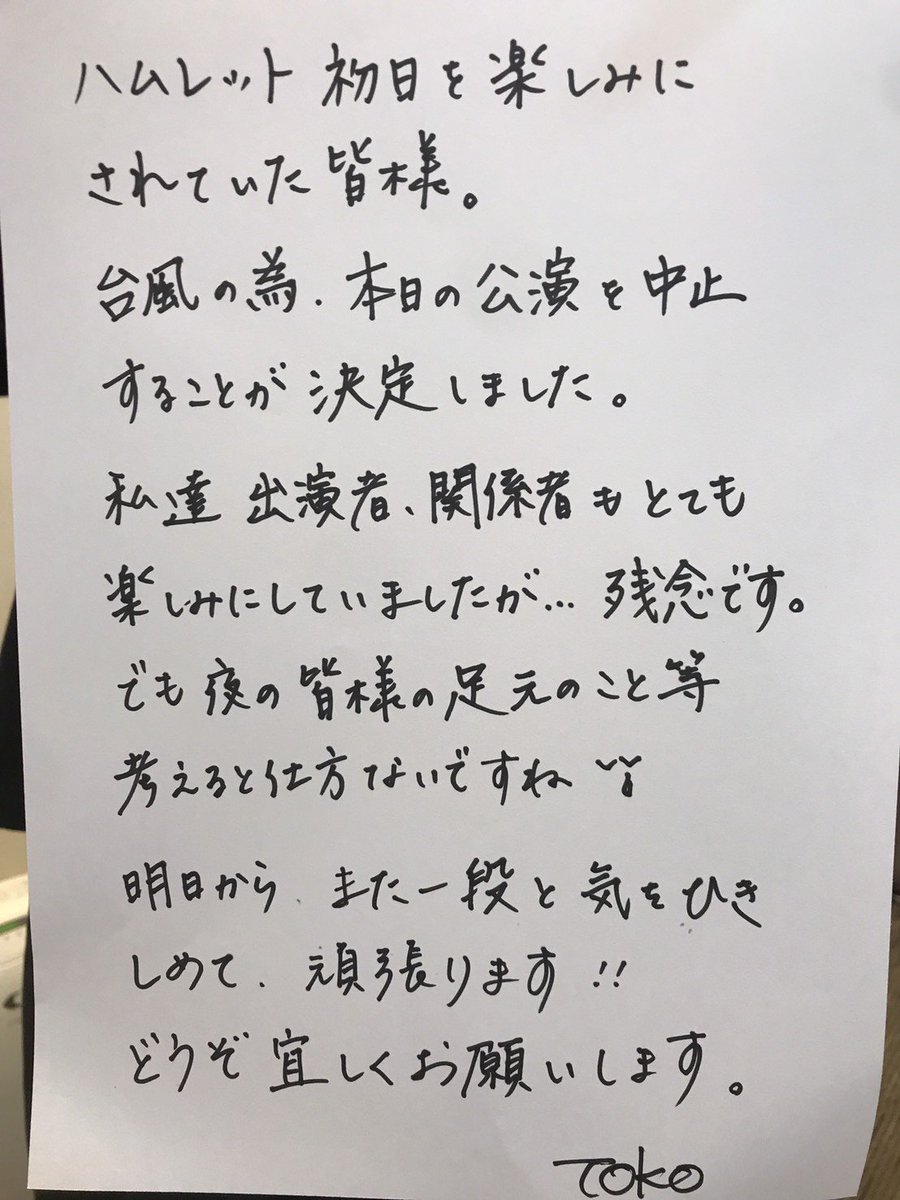 ハムレット 初日を楽しみに
されていた皆様。
台風の為、本日の公演を中止
することが決定しました。
私達 出演者、関係者もとても
楽しみにしていましたが… 残念です。
でも夜の皆様の足元のこと等
考えると仕方ないですね
明日から、また一段と気をひき
しめて、頑張ります!!
どうぞ宜しくお願いします。
TOKO